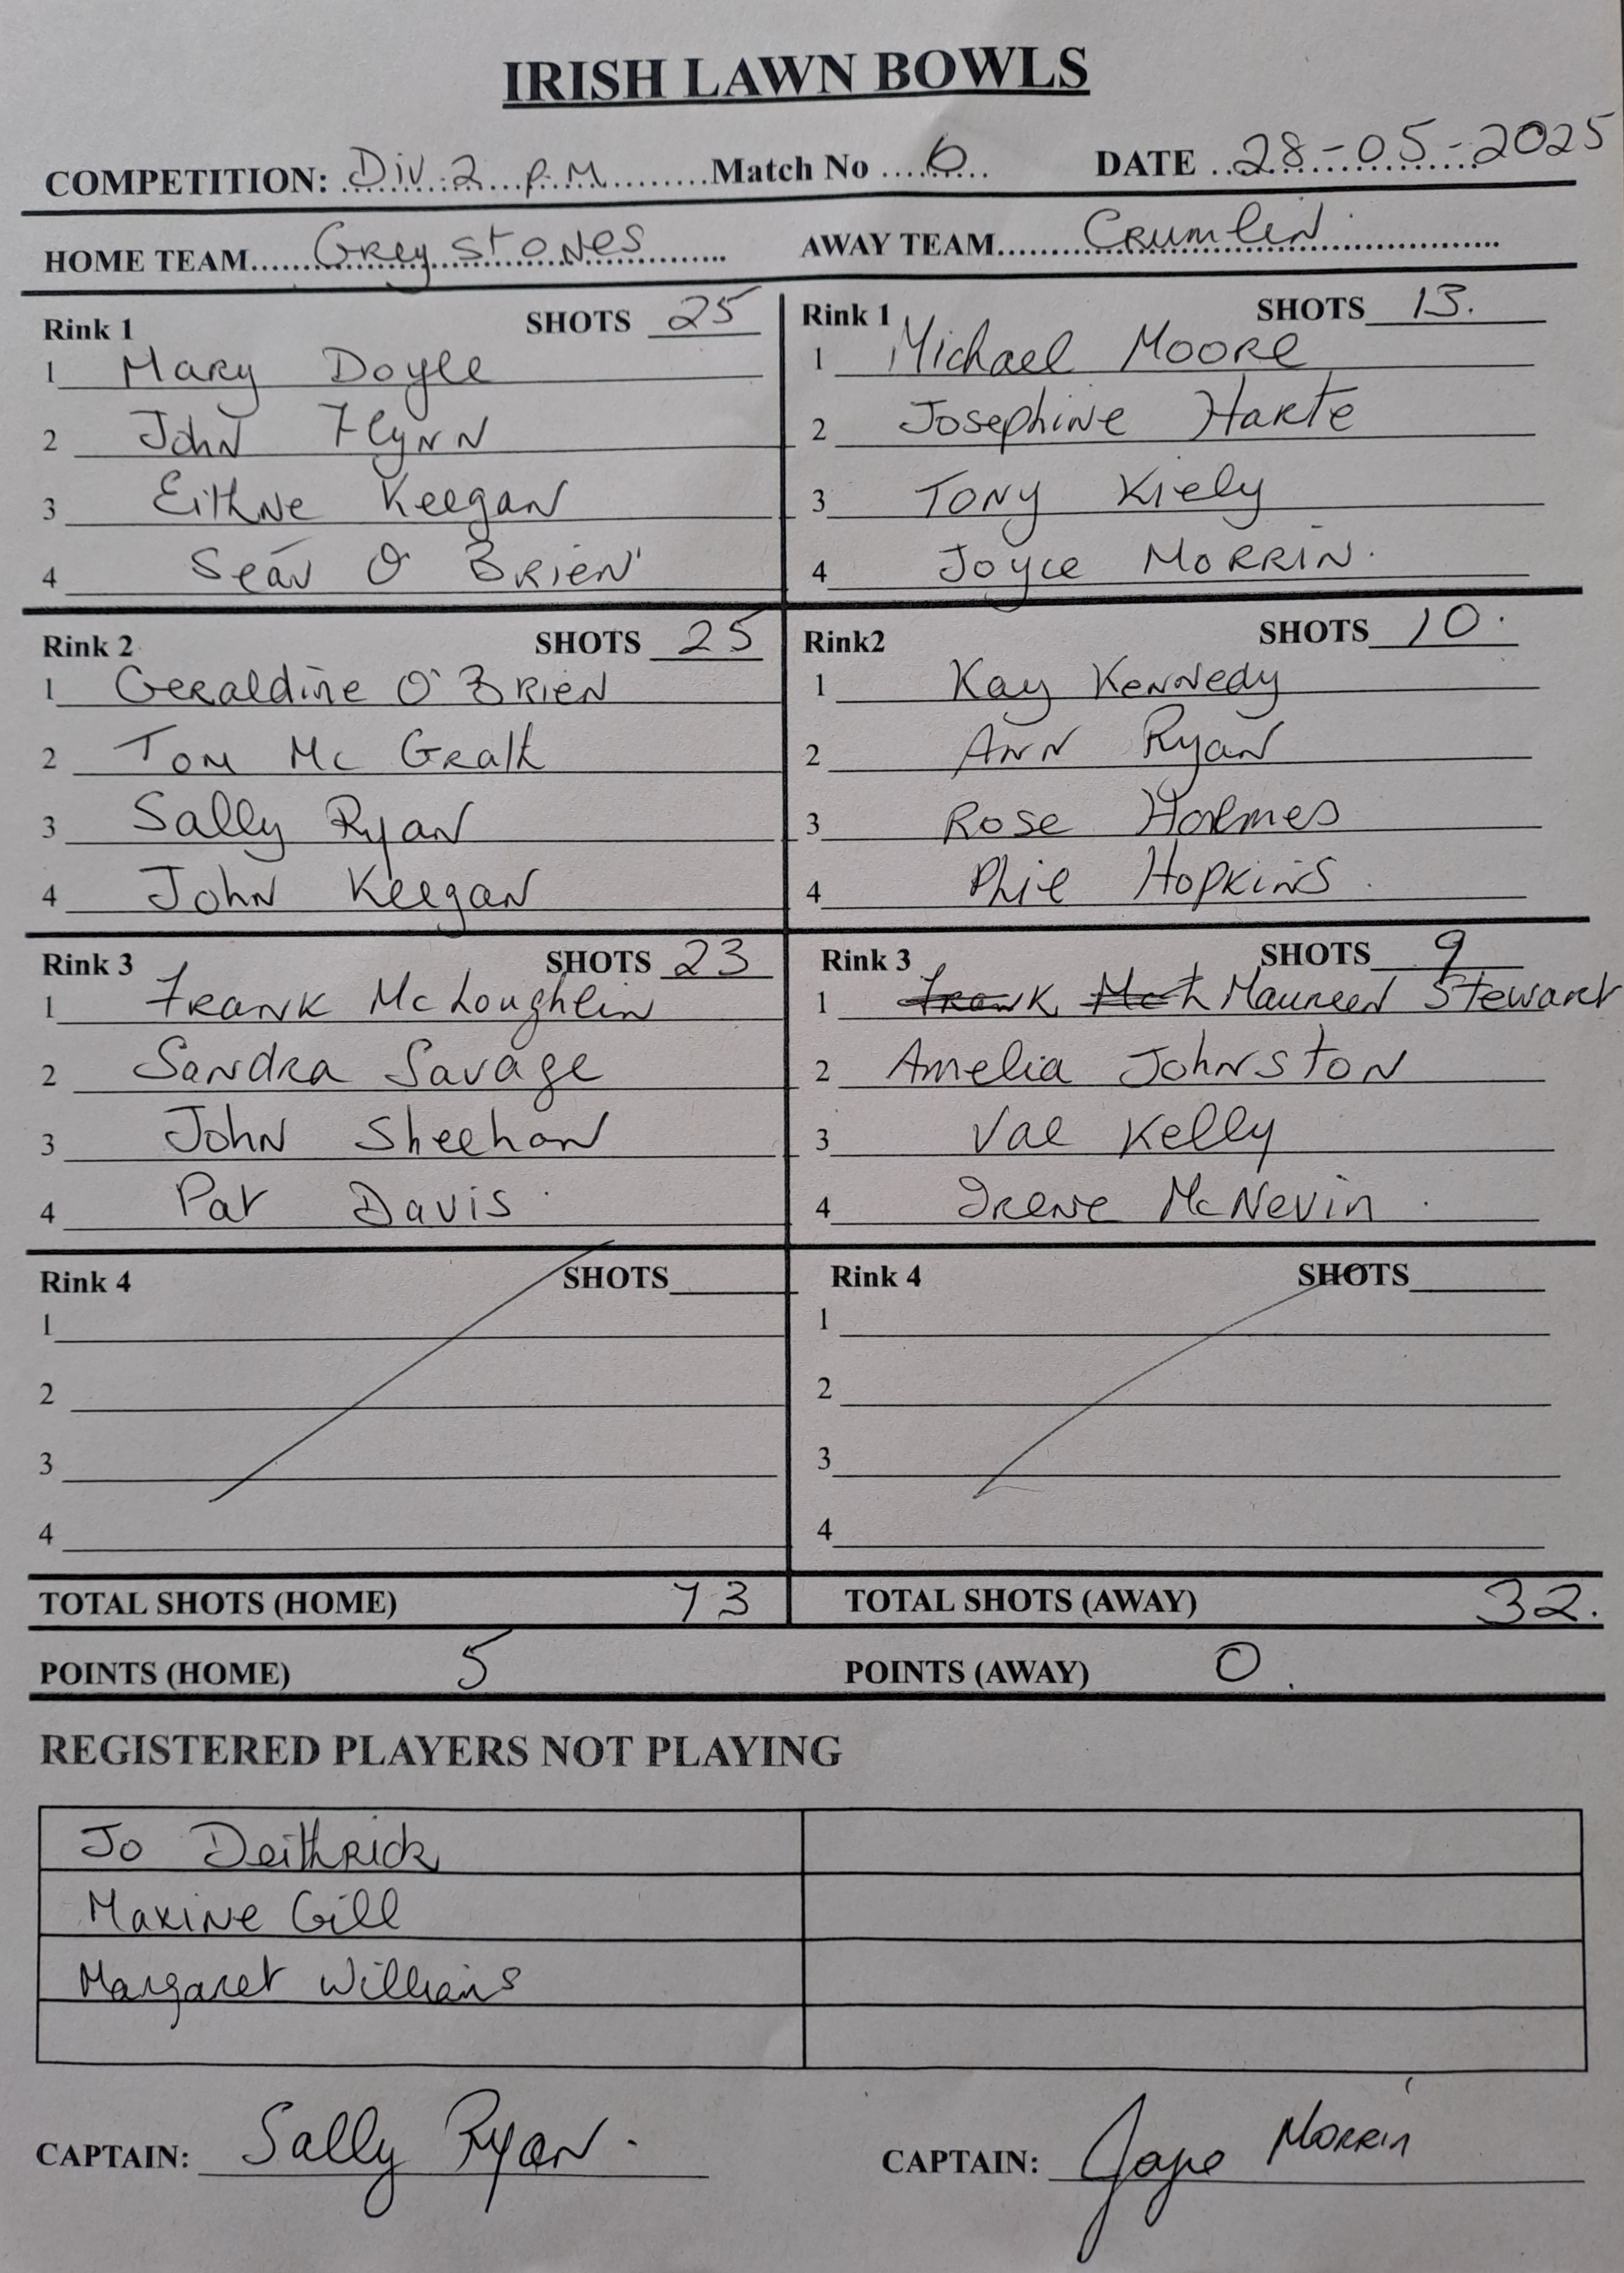 IRISH LAWN BOWLS
COMPETITION: Div 2 P.M Match No 6 DATE 28-05-2025
HOME TEAM Greystones AWAY TEAM Crumlin
Rink 1 SHOTS 25
1 Mary Doyle
2 John Flynn
3 Eithne Keegan
4 Seán O'Brien
Rink 1 SHOTS 13.
1 Michael Moore
2 Josephine Harte
3 Tony Kiely
4 Joyce Morrin.
Rink 2 SHOTS 25
1 Geraldine O'Brien
2 Tom Mc Grath
3 Sally Ryan
4 John Keegan
Rink2 SHOTS 10.
1 Kay Kennedy
2 Ann Ryan
3 Rose Holmes
4 Phil Hopkins.
Rink 3 SHOTS 23
1 Frank McLoughlin
2 Sandra Savage
3 John Sheehan
4 Pat Davis.
Rink 3 SHOTS 9
1 Frank McL Maureen Stewart
2 Amelia Johnston
3 Val Kelly
4 Irene McNevin.
Rink 4 SHOTS
1
2
3
4
Rink 4 SHOTS
1
2
3
4
TOTAL SHOTS (HOME) 73 TOTAL SHOTS (AWAY) 32.
POINTS (HOME) 5 POINTS (AWAY) 0.
REGISTERED PLAYERS NOT PLAYING
Jo Deithrick
Maxine Gill
Margaret Williams
CAPTAIN: Sally Ryan. CAPTAIN: Joyce Morrin